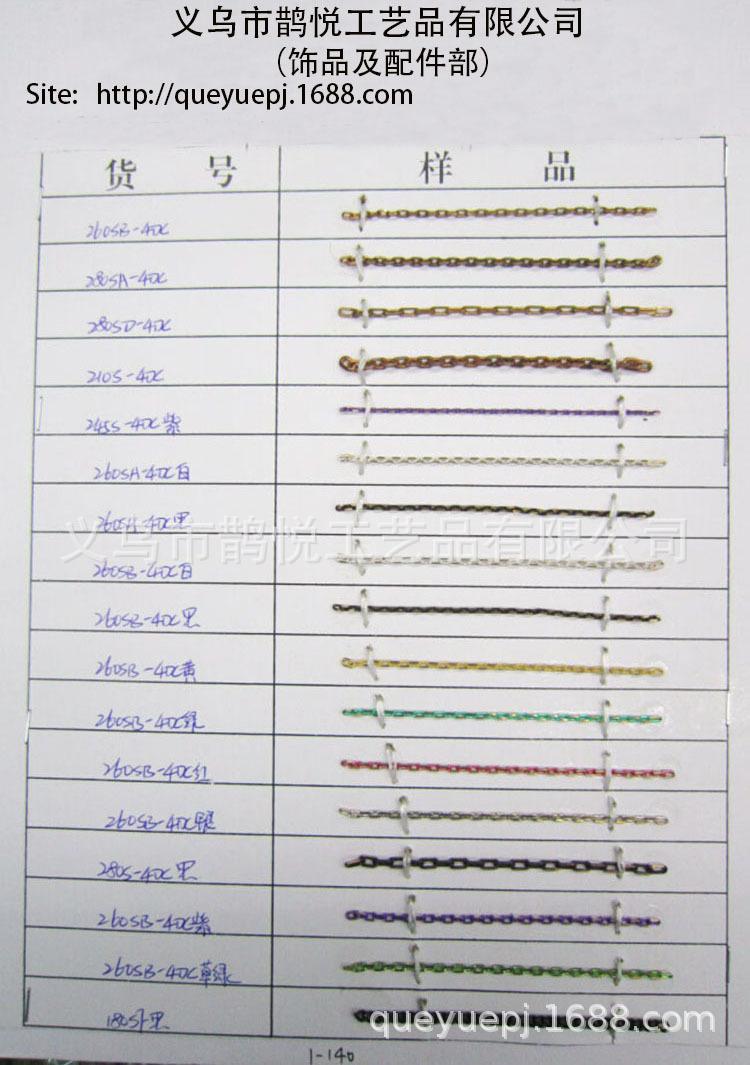 义乌市鹊悦工艺品有限公司
(饰品及配件部)
Site: http://queyuepj.1688.com
货号 样品
260SB-4DC
280SA-4DC
280SD-4DC
210S-4DC
245S-4DC紫
260SA-4DC白
260SA-4DC黑
义乌市鹊悦工艺品有限公司
260SB-4DC白
260SB-4DC黑
260SB-4DC黄
260SB-4DC绿
260SB-4DC红
260SB-4DC银
280S-4DC黑
260SB-4DC紫
260SB-4DC草绿
180S外黑
queyuepj.1688.com
1-140